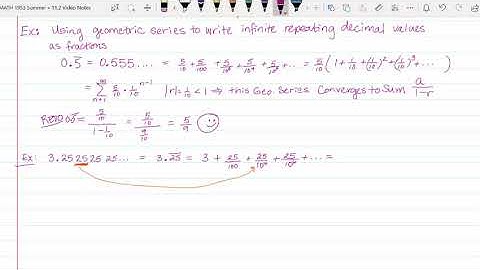 MATH 1853 Summer • 11.2 Video Notes
Ex: Using geometric series to write infinite repeating decimal values
as fractions
0.5̅ = 0.555.... = 5/10 + 5/100 + 5/10³ + 5/10⁴ + ... = 5/10 (1 + 1/10 + (1/10)² + (1/10)³ + ...
= ∑_{n=1}^{∞} 5/10 · 1/10^{n-1} |r| = 1/10 < 1 → this Geo. Series Converges to Sum a/(1-r)
= (5/10)/(1 - 1/10) = (5/10)/(9/10) = 5/9
Ex: 3.25 25 25 25... = 3.2̅5̅ = 3 + 25/100 + 25/10⁴ + 25/10⁶ + ... =